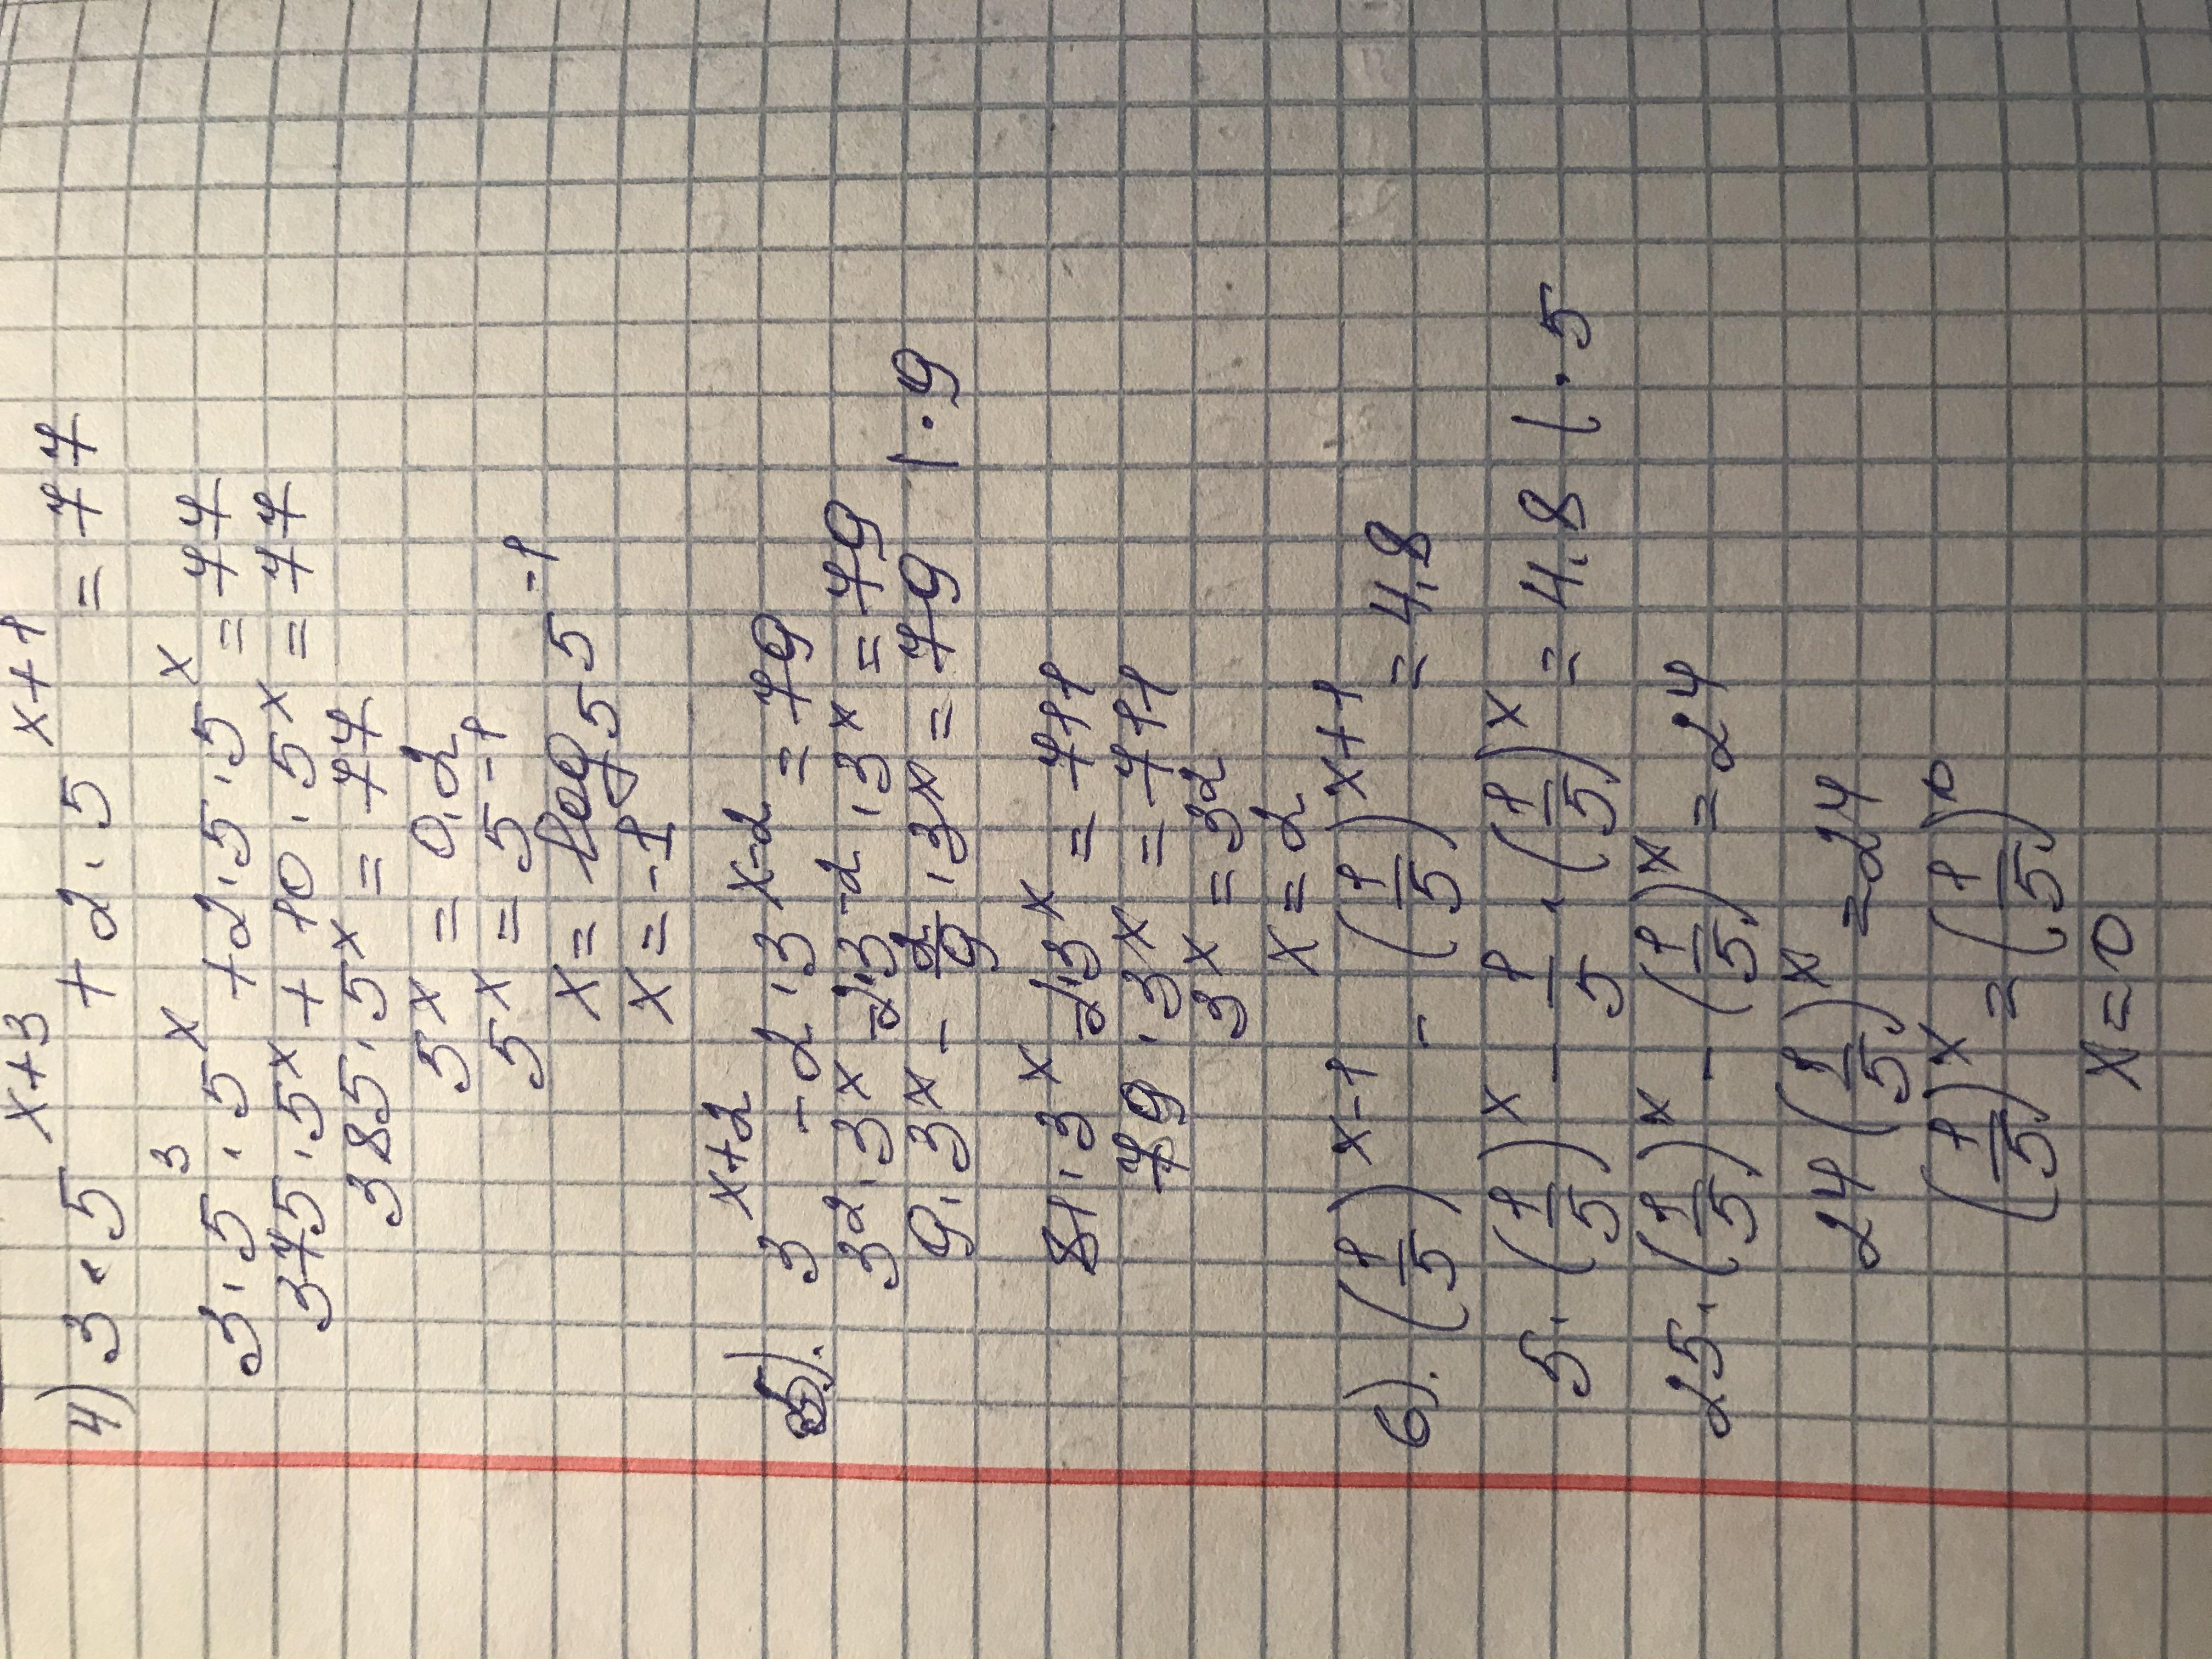 4) 3·5^(x+3) + 2·5^(x+1) = 77
3·5^3·5^x + 2·5·5^x = 77
375·5^x + 10·5^x = 77
385·5^x = 77
5^x = 0,2
5^x = 5^(-1)
x = log_5 5^(-1)
x = -1
5). 3^(x+2) - 2·3^(x-2) = 79
3^2·3^x - 2·3^(-2)·3^x = 79
9·3^x - 2/9·3^x = 79 |·9
81·3^x - 2·3^x = 711
79·3^x = 711
3^x = 3^2
x = 2
6). (1/5)^(x-1) - (1/5)^(x+1) = 4,8
5·(1/5)^x - 1/5·(1/5)^x = 4,8 |·5
25·(1/5)^x - (1/5)^x = 24
24(1/5)^x = 24
(1/5)^x = (1/5)^0
x = 0